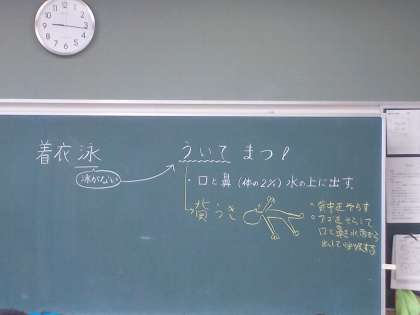 着衣泳
泳がない
ういて まつ!
・口と鼻(体の2%)水の上に出す。
背うき
・背中をそらす
・アゴをそらして
口と鼻を水面から
出して呼吸する